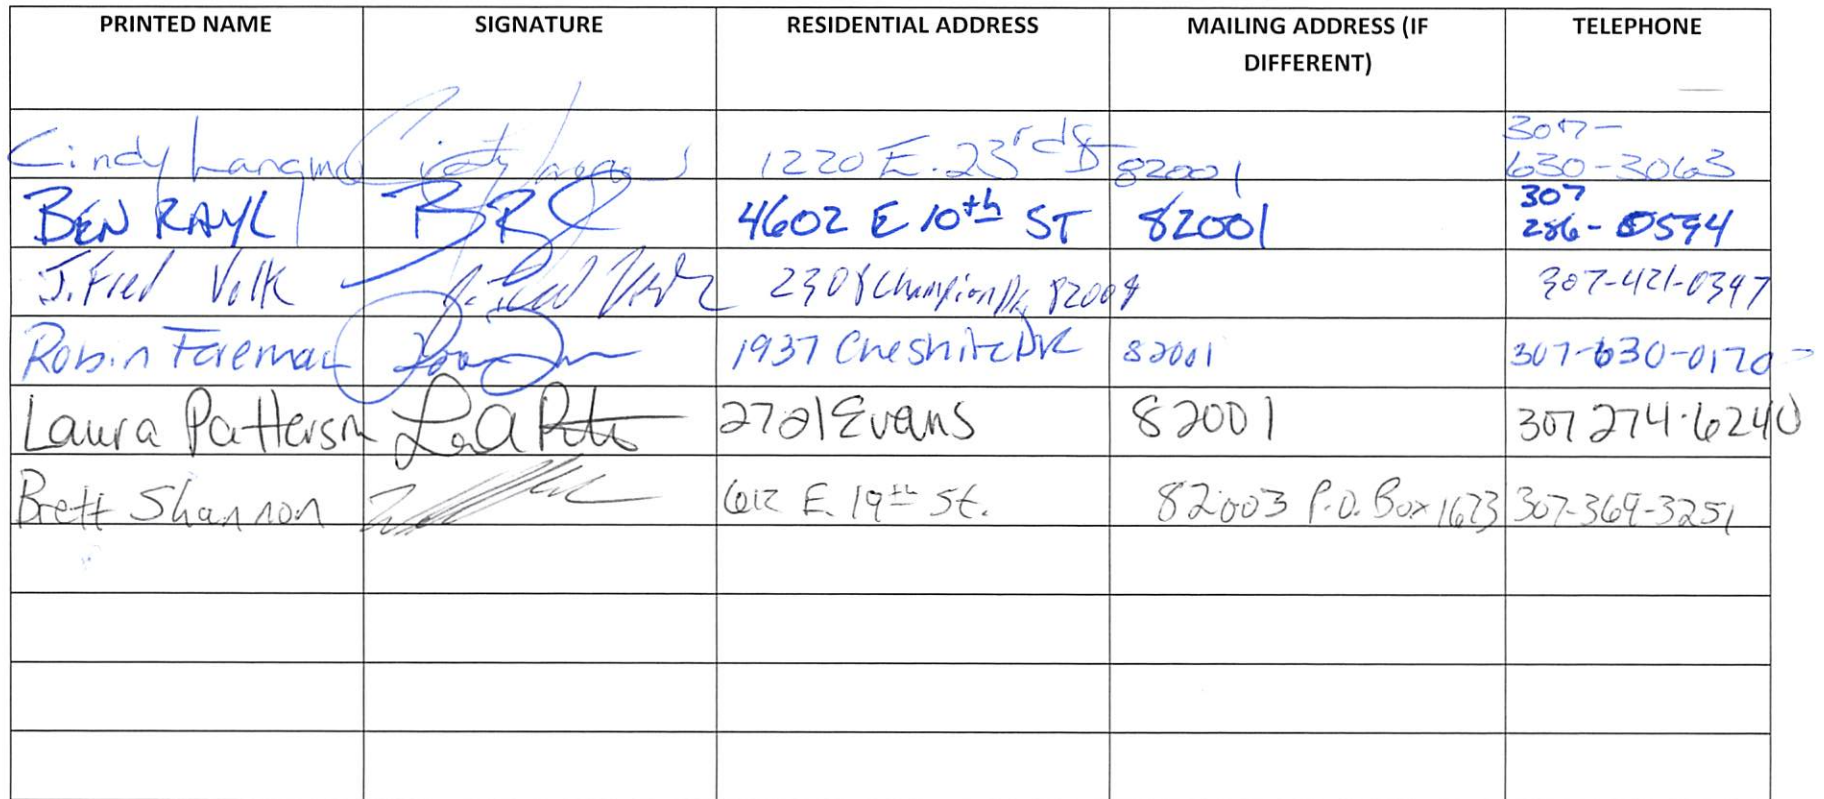 PRINTED NAME SIGNATURE RESIDENTIAL ADDRESS MAILING ADDRESS (IF DIFFERENT) TELEPHONE
Cindy 1220 E. 23rd St 82001 307-630-3063
BEN RAYL 4602 E 10th ST 82001 307 286-0594
J. Fred Volk 2308 Champion Dr. 82009 307-421-0347
Robin Foreman 1937 Cheshire Dr 82001 307-630-0170
Laura Patterson 2721 Evans 82001 307 274-6240
Brett Shannon 612 E. 19th St. 82003 P.O. Box 1673 307-369-3251